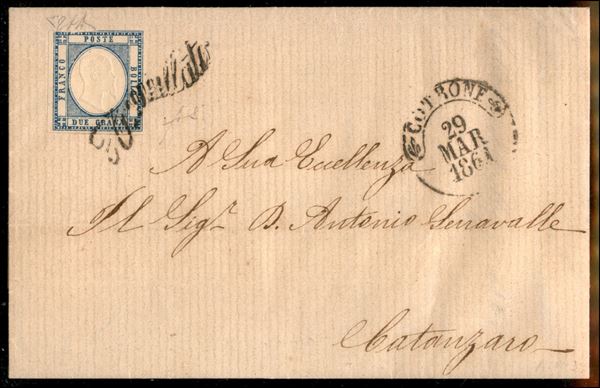 POSTE
FRANCO
BOLLO
DUE GRANA
Annullato
COTRONE
29
MAR
1861
A Sua Eccellenza
Il Sigr. D. Antonio Serravalle
Catanzaro